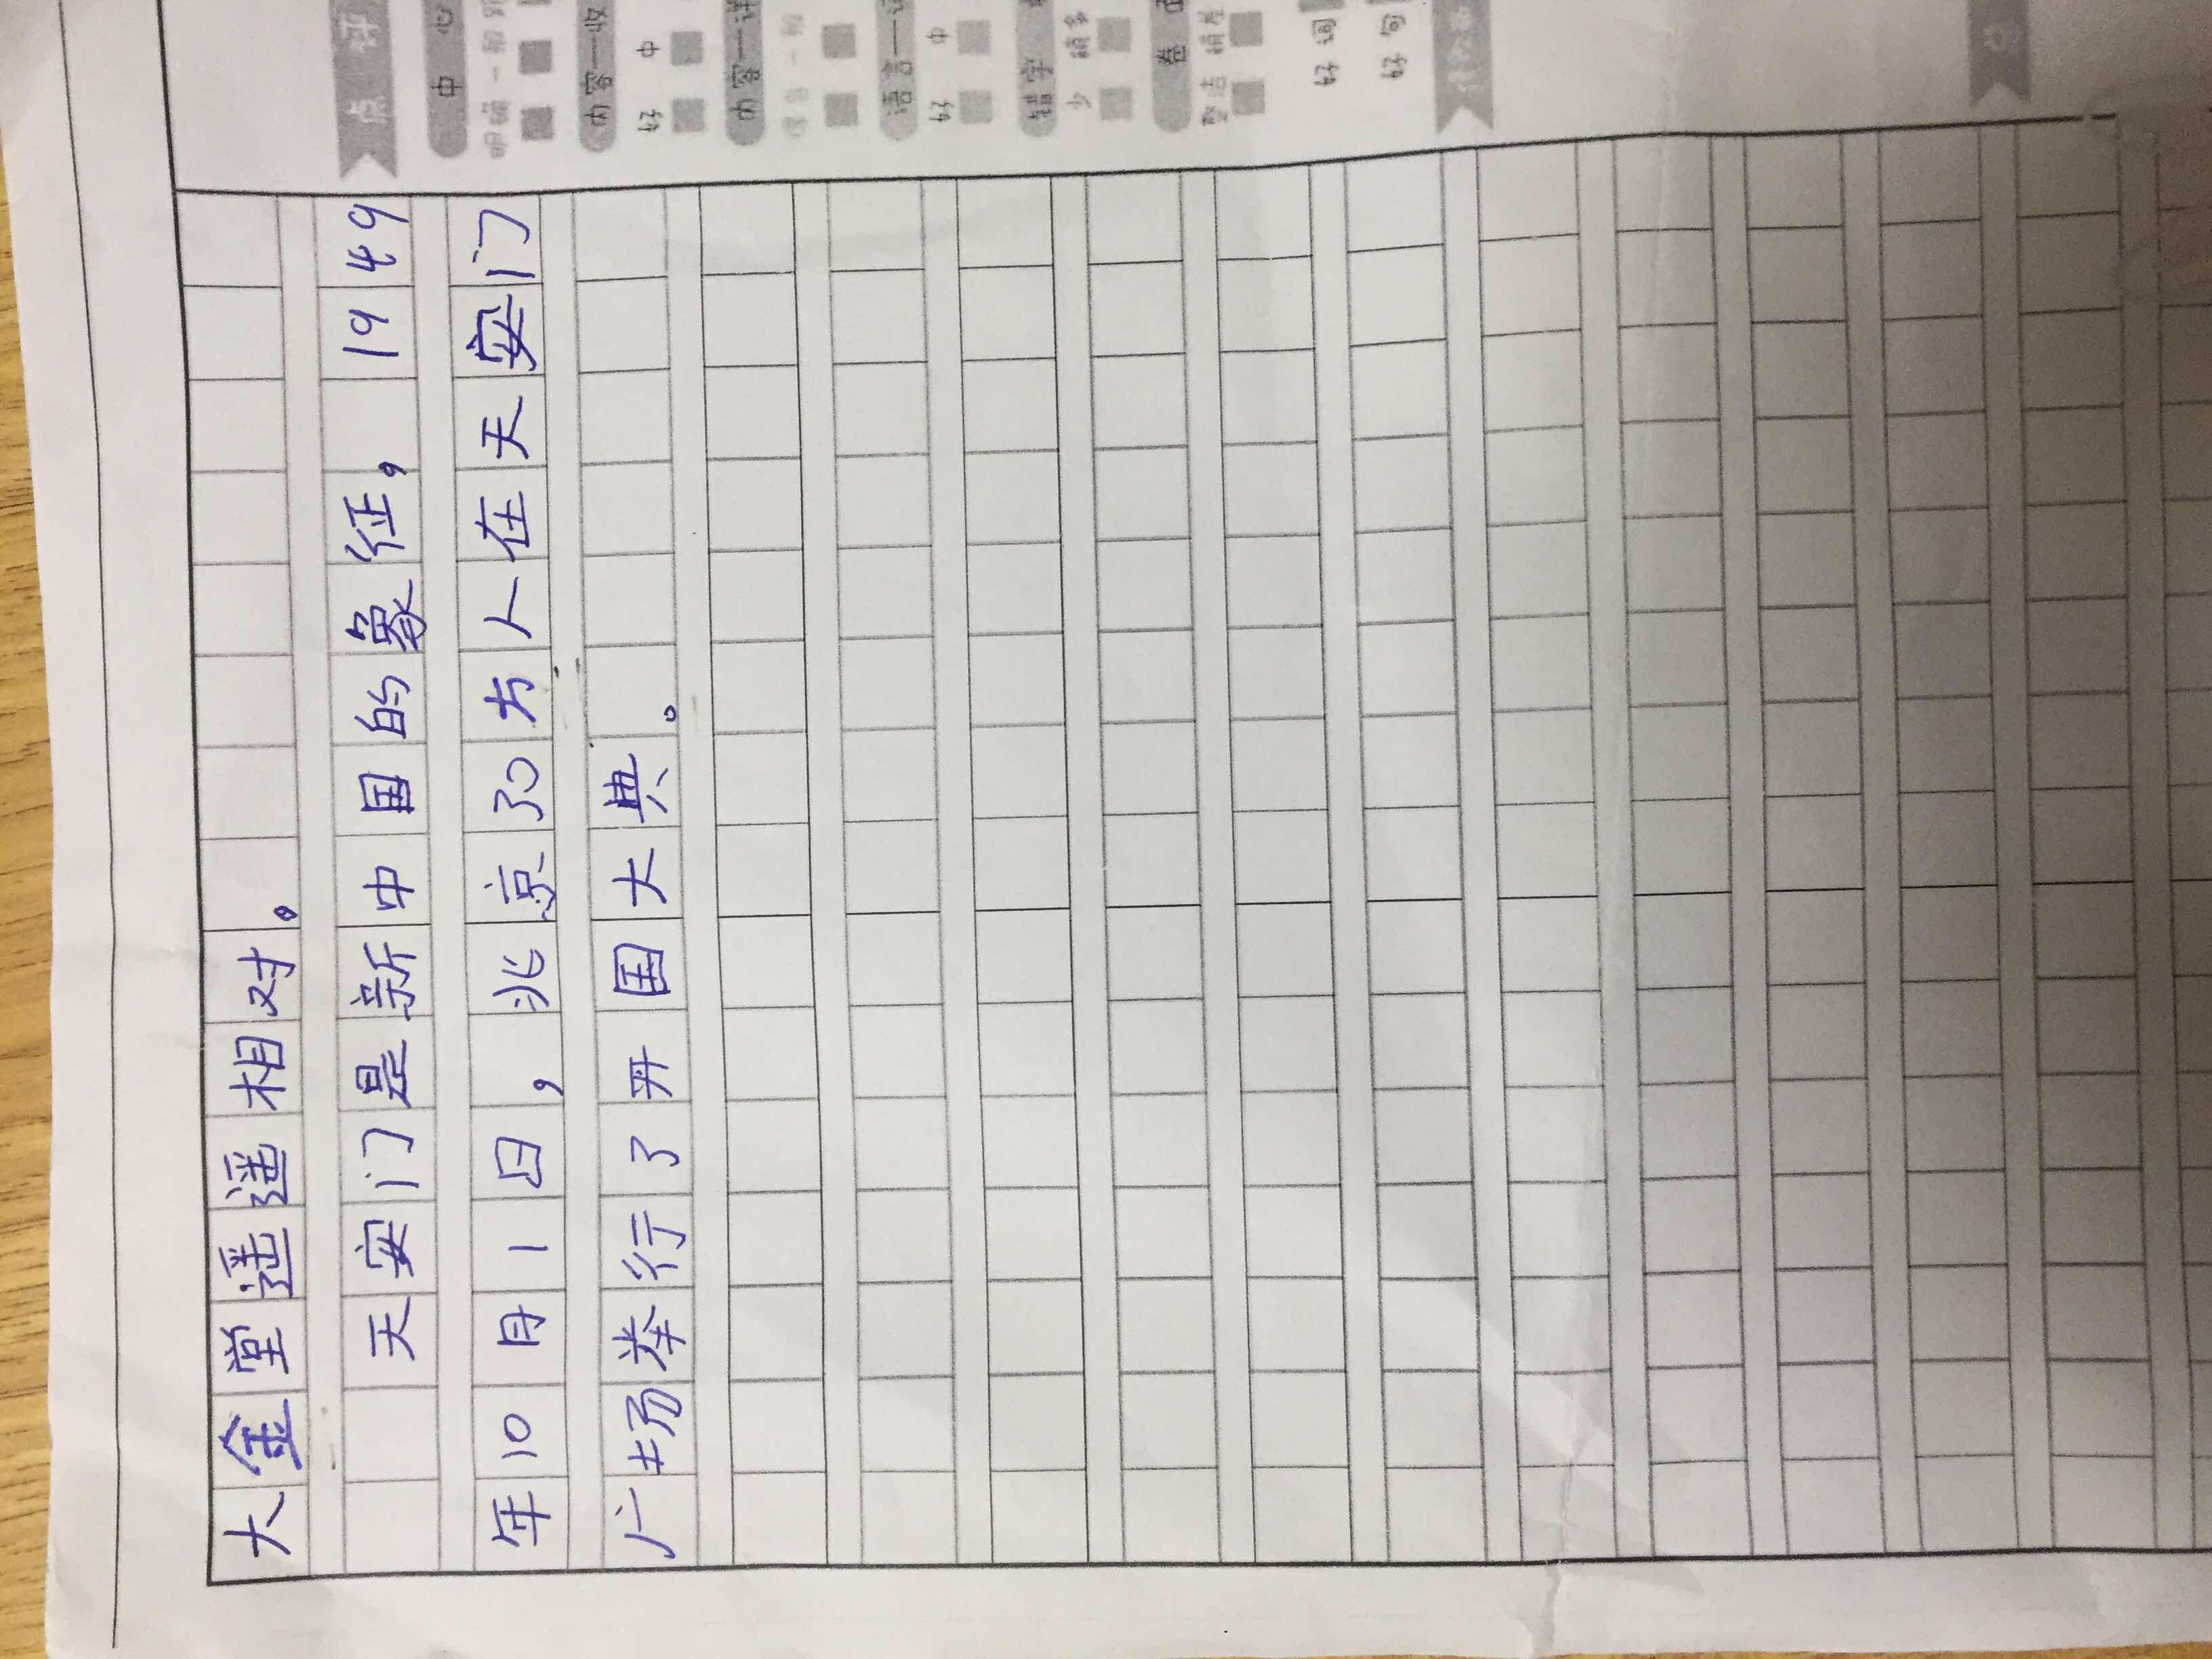 大金堂遥遥相对。
天安门是新中国的象征，1949
年10月1日，北京30万人在天安门
广场举行了开国大典。
点
中心
明确 一般
内容——收
好 中
内容——详
一般
语言——
好 中
错字
少 稍多
卷面
整洁 稍差
好词
好句